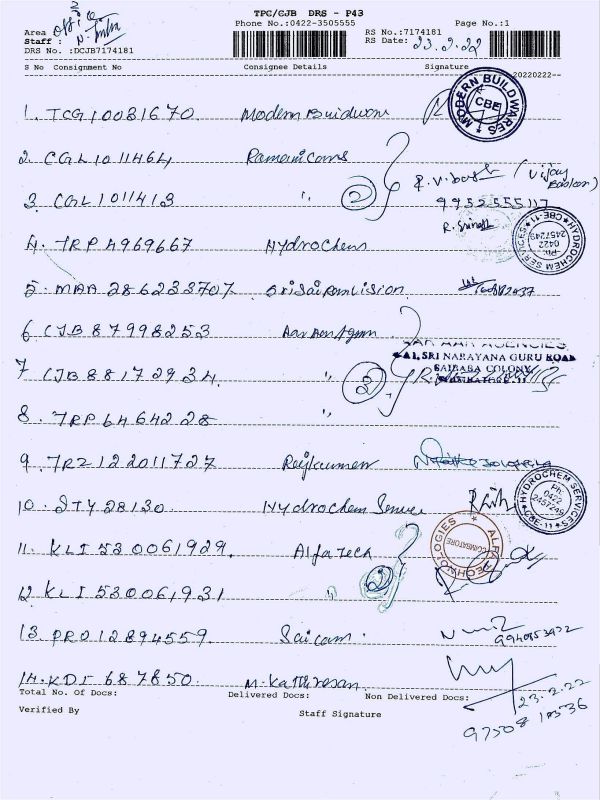 TPC/CJB DRS - P43
Area office
Phone No.:0422-3505555 Page No.:1
Staff :
RS No.:7174181
DRS No. :DCJB7174181
RS Date: 23.2.22
S No Consignment No Consignee Details Signature
20220222--
MODERN BUILD WARES CBE
1. TCG10031670 Modern Buidware
2. CGL1011464
3. CGL1011413 " 2
9952555117
4. TRP4969667 Hydrochem
HYDROCHEM SERVICES Ph: 0422 2457249 CBE-11
5. MAA286233707
6 CJB87998253
7 CJB88172934 " 3
A1, SRI NARAYANA GURU ROAD
SAIBABA COLONY,
COIMBATORE-11
8. TRP6464228 "
9. TRZ122011727 Rajkumar
10. STY28130 Hydrochem Service
HYDROCHEM SERVICES Ph: 0422 2457249 CBE-11
11. KLI530061929. Alfa Tech
ALFA TECHNOLOGIES COIMBATORE
12 KLI530061931 " 2
13. PRO12894559. Saicam.
14. KDI687850. M. Kathiresan
Total No. Of Docs: Delivered Docs: Non Delivered Docs:
23-2-22
Verified By Staff Signature